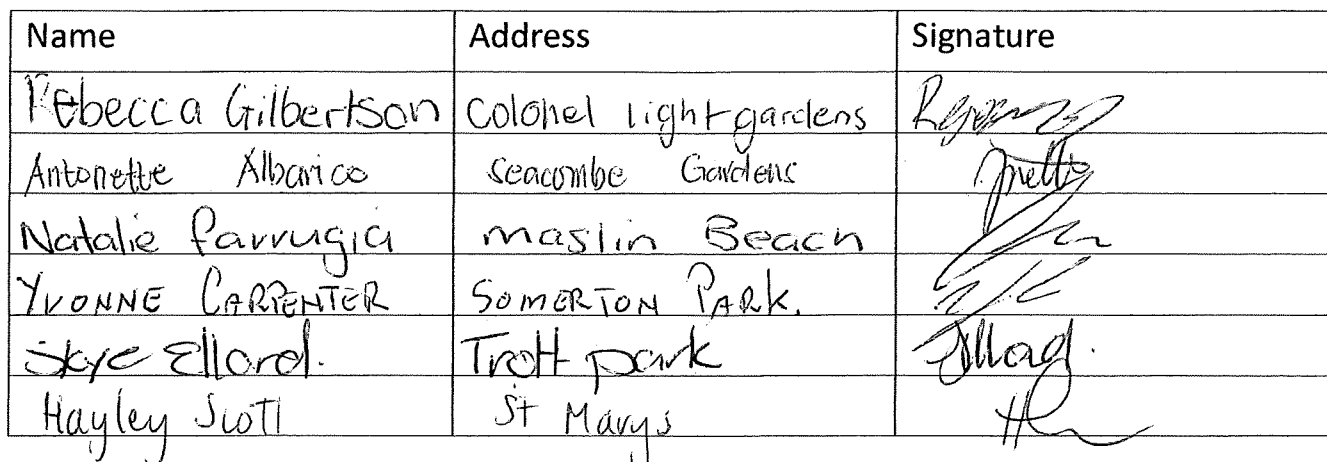 Name Address Signature
Rebecca Gilbertson Colonel light gardens
Antonette Albarico Seacombe Gardens
Natalie farrugia maslin Beach
YVONNE CARPENTER SOMERTON PARK.
Skye Ellard. Trott park
Hayley Scott St Marys